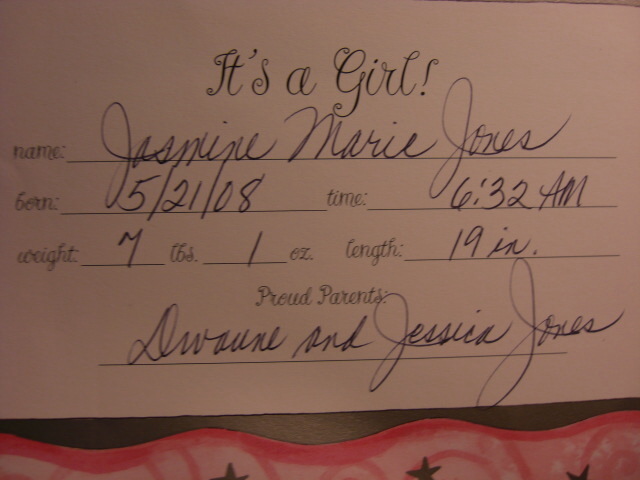 It's a Girl!
name: Jasmine Marie Jones
born: 5/21/08 time: 6:32 AM
weight: 7 lbs. 1 oz. length: 19 in.
Proud Parents:
Dwaune and Jessica Jones